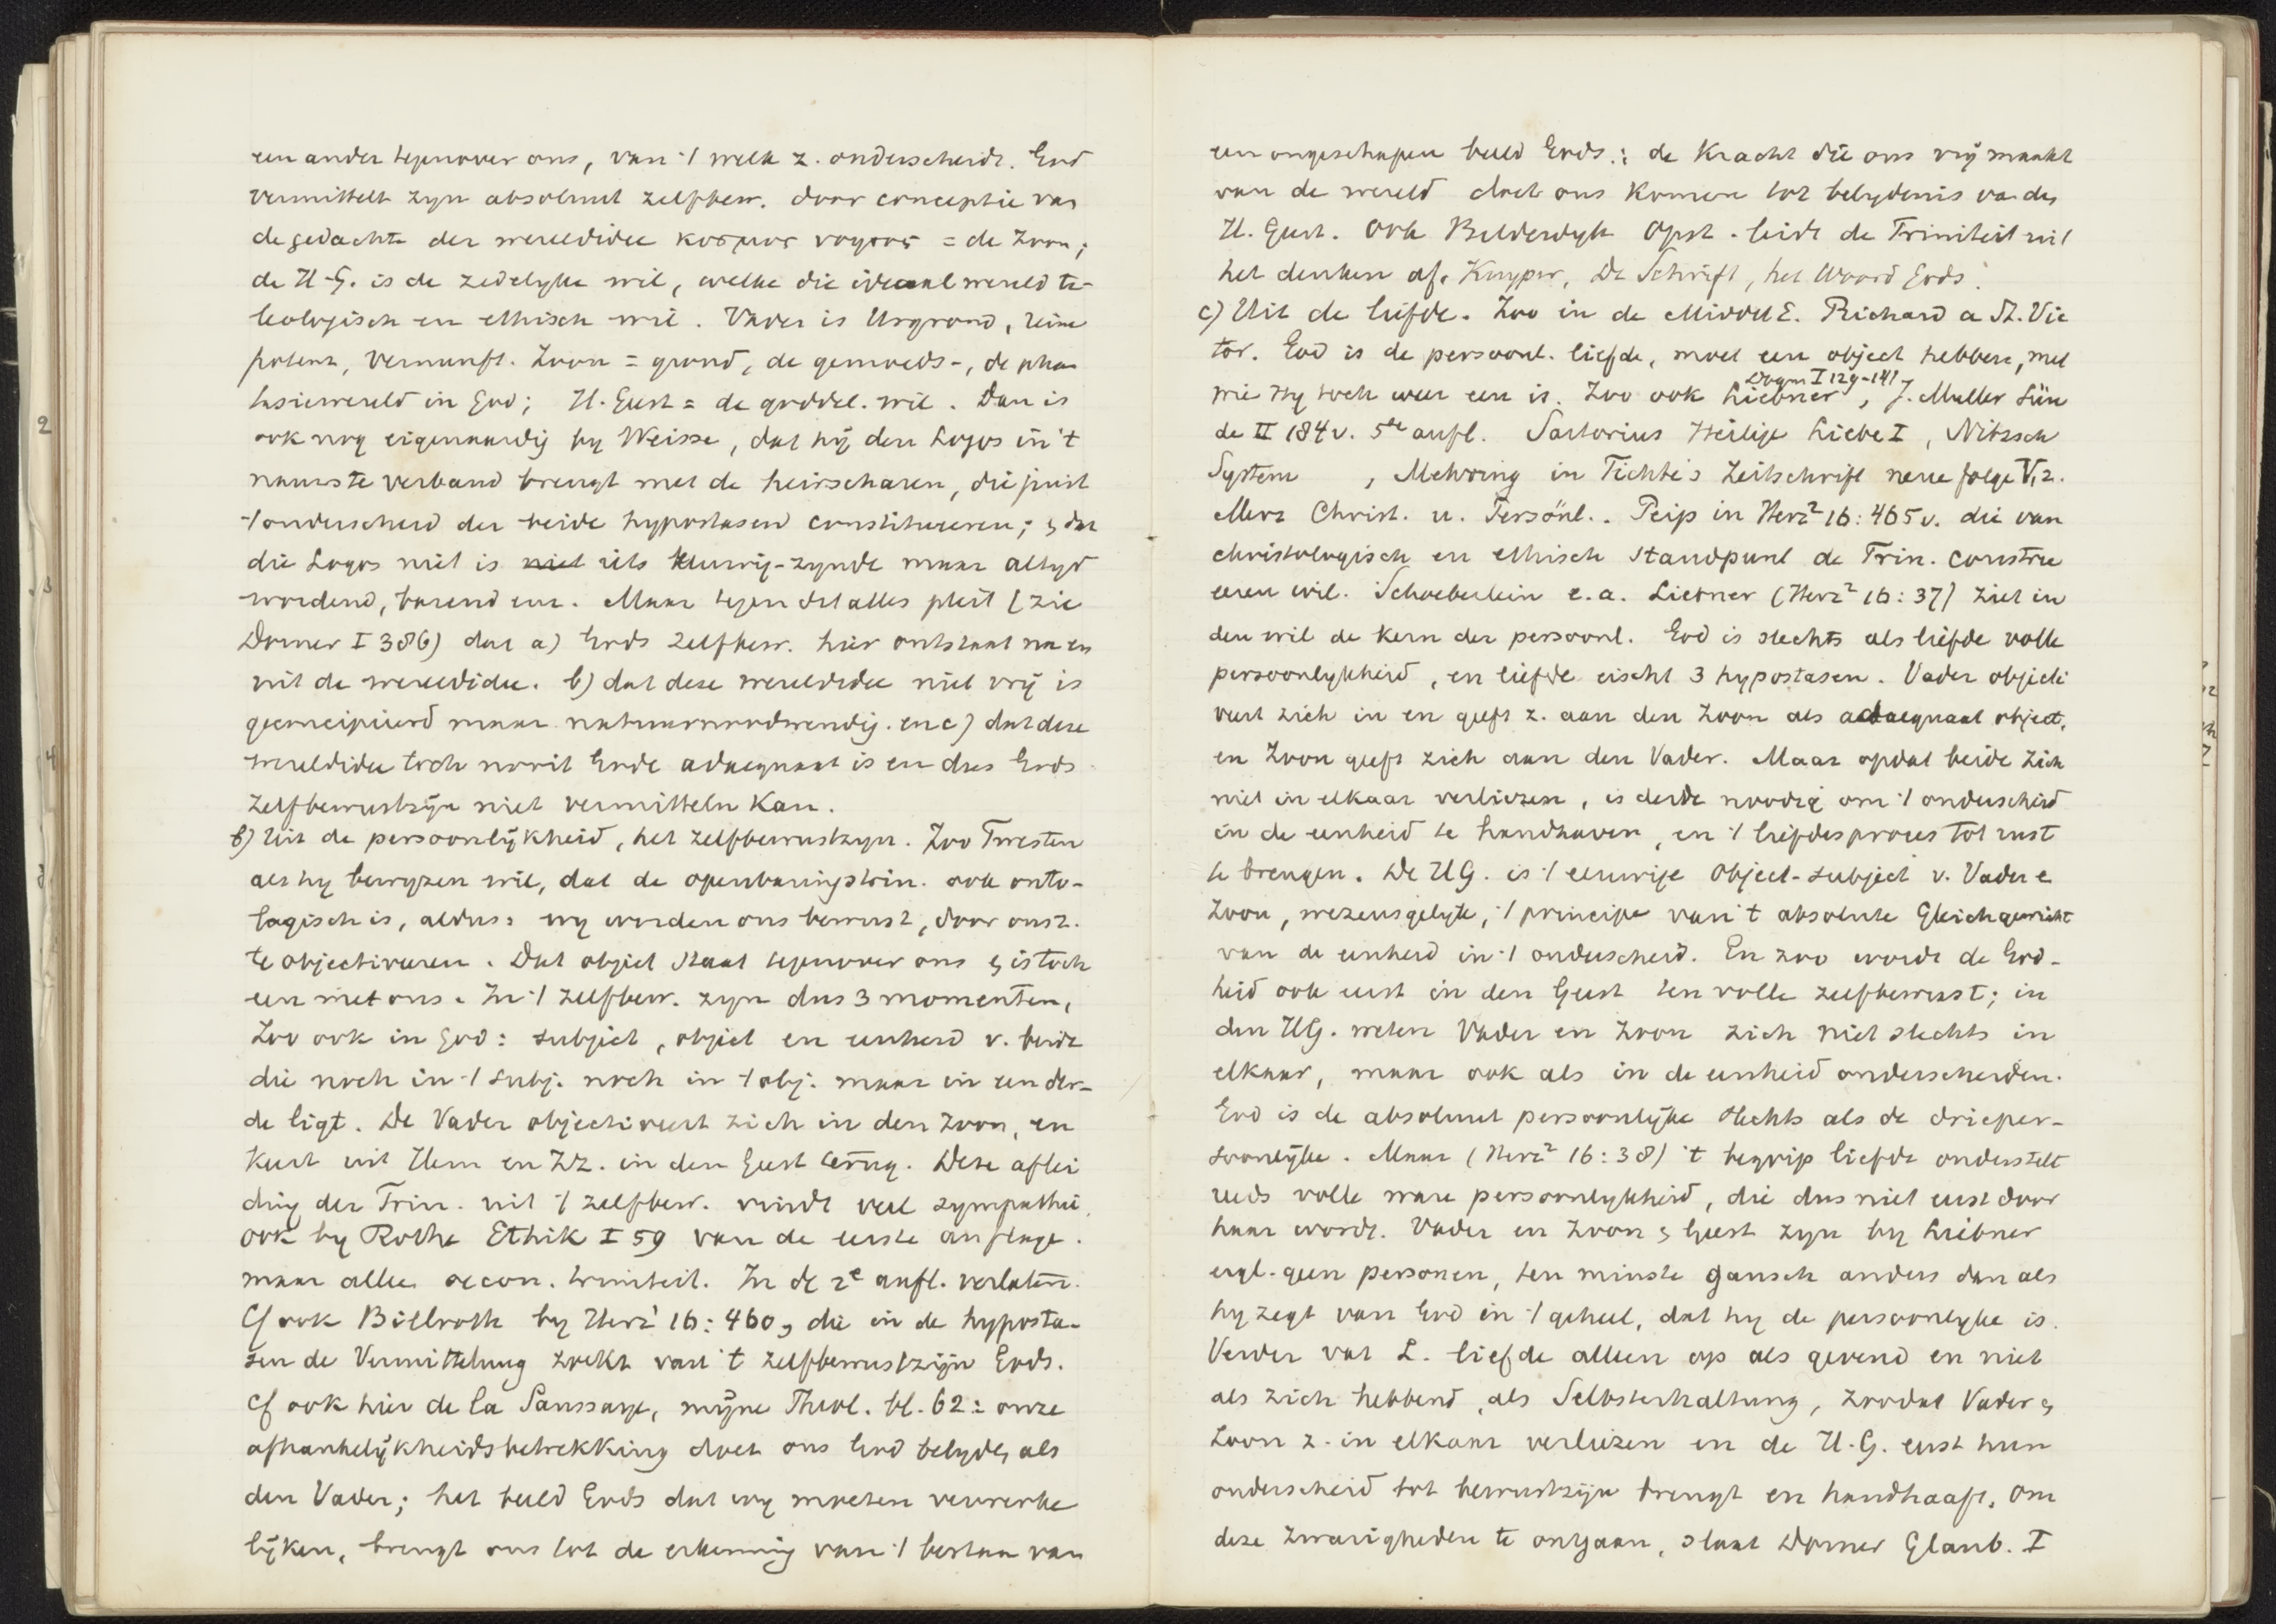 een ander tegenover ons, van 't welk z. onderscheidt. God
vermittelt zyn absoluut zelfbew. door conceptie van
de gedachte der wereldidee κοσμος νοητος = de Zoon;
de H.G. is de zedelyke wil, welke die ideaal wereld te-
leologisch en ethisch wil. Vader is Urgrond, reine
potenz, Vernunft. Zoon = grond, de gemoeds-, de phan
tasiewereld in God; H. Geest = de goddel. wil. Dan is
ook nog eigenaardig by Weisse, dat hij den Logos in 't
nauwste verband brengt met de heirscharen, die juist
't onderscheid der beide hypostasen constitueeren; & dat
die Logos niet is niet iets eeuwig-zynde maar altyd
wordend, barend enz. Maar tegen dit alles pleit (zie
Dorner I 386) dat a) Gods zelfbew. hier ontstaat na en
uit de wereldidee. b) dat deze wereldidee niet vrij is
geconcipieerd maar natuurnoodwendig. en c) dat deze
wereldidee toch nooit Gode adaequaat is en dus Gods
zelfbewustzijn niet vermitteln kan.
b) Uit de persoonlijkheid, het zelfbewustzyn. Zoo Twesten
als hy bewyzen wil, dat de openbaringstrin. ook onto-
logisch is, aldus: wy worden ons bewust, door ons z.
te objectiveeren. Dat object staat tegenover ons & is toch
een met ons. In 't zelfbew. zyn dus 3 momenten,
Zoo ook in God: subject, object en eenheid v. beide
die noch in 't subj. noch in 't obj. maar in een der-
de ligt. De Vader objectiveert zich in den Zoon, en
keert uit Hem en Zz. in den Geest terug. Deze aflei
ding der Trin. uit 't zelfbew. vindt veel sympathie,
ook by Rothe Ethik I 59 van de eerste auflage.
maar alleen oecon. triniteit. In de 2e aufl. verlaten.
Cf ook Billroth by Herz¹ 16: 460, die in de hyposta-
sen de Vermittelung zoekt van 't zelfbewustzijn Gods.
Cf ook hier de la Saussaye, mijne Theol. bl. 62: onze
afhankelijkheidsbetrekking doet ons God belyden als
den Vader; het beeld Gods dat wy moeten verwerke
lijken, brengt ons tot de erkenning van 't bestaan van
een ongeschapen beeld Gods.: de kracht die ons vrij maakt
van de wereld doet ons komen tot belydenis van den
H. Geest. Ook Bilderdyk Opst. leidt de Triniteit uit
het denken af. Kuyper, De Schrift, het Woord Gods.
c) Uit de liefde. Zoo in de MiddelE. Richard a St. Vic
tor. God is de persoonl. liefde, moet een object hebben, met
Dogm I 129-141
wie Hy toch weer een is. Zoo ook Liebner, J. Muller Sün
de II 184 v. 5de aufl. Sartorius Heilige Liebe I, Nitzsch
System , Mehring in Fichte's Zeitschrift neue folge V, 2.
Merz Christ. u. Persönl.. Peip in Herz² 16: 465 v. die van
christologisch en ethisch standpunt de Trin. constru
eeren wil. Schoeberlein e.a. Liebner (Herz² 16: 37) ziet in
den wil de kern der persoonl. God is slechts als liefde volle
persoonlykheid, en liefde eischt 3 hypostasen. Vader objecti
veert zich in en geeft z. aan den Zoon als adaequaat object,
en Zoon geeft zich aan den Vader. Maar opdat beide zich
niet in elkaar verliezen, is derde noodig om 't onderscheid
in de eenheid te handhaven, en 't liefdesproces tot rust
te brengen. De HG. is 't eeuwige Object-subject v. Vader e
Zoon, wezensgelyk, 't principe van 't absolute Gleichgewicht
van de eenheid in 't onderscheid. En zoo wordt de God-
heid ook eerst in den Geest ten volle zelfbewust; in
den HG. weten Vader en Zoon zich niet slechts in
elkaar, maar ook als in de eenheid onderscheiden.
God is de absoluut persoonlijke slechts als de drieper-
soonlijke. Maar (Herz² 16: 38) 't begrip liefde onderstelt
reeds volle ware persoonlykheid, die dus niet eerst door
haar wordt. Vader en Zoon & Geest zyn by Liebner
eigl. geen personen, ten minste gansch anders dan als
hy zegt van God in 't geheel, dat hy de persoonlyke is.
Verder vat L. liefde alleen op als gevend en niet
als zich hebbend, als Selbsterhaltung, zoodat Vader &
Zoon z. in elkaar verliezen en de H.G. eerst hun
onderscheid tot bewustzijn brengt en handhaaft. Om
deze zwarigheden te ontgaan, slaat Dorner Glaub. I